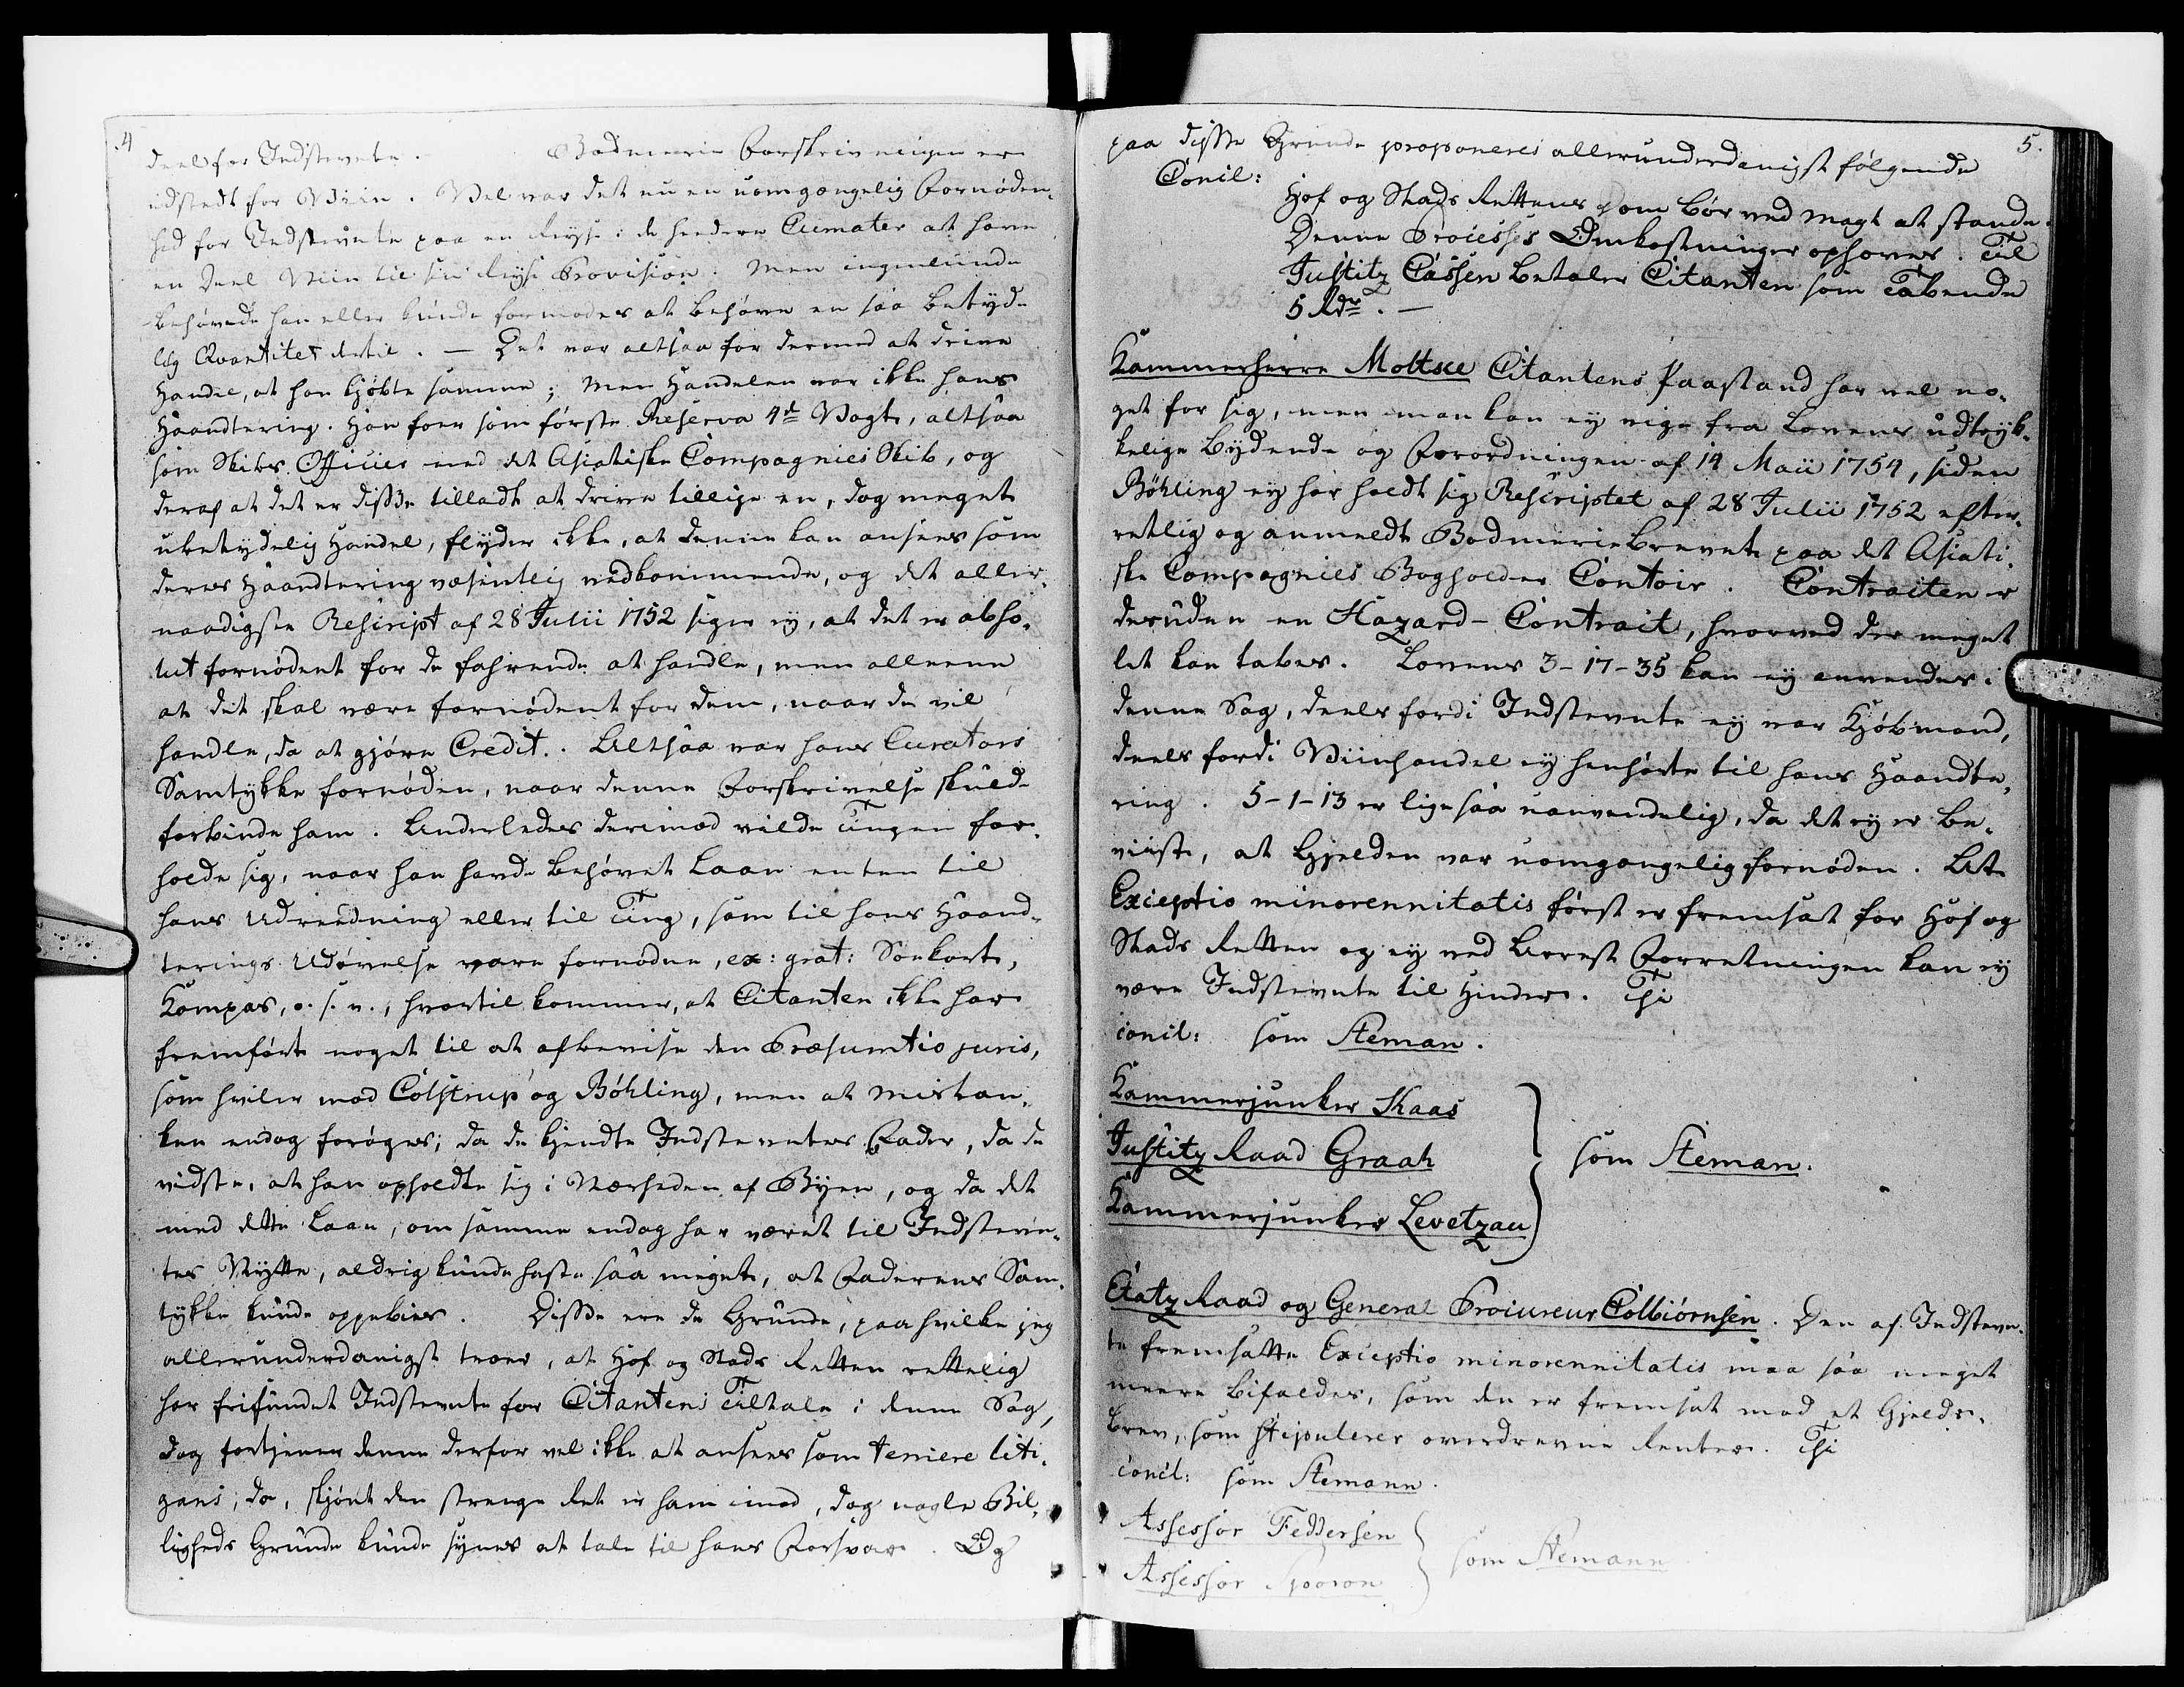 4
deel for Indstevnte. Bodmerie Forskrivningen er
udstedt for Viin. Vel var det nu en uomgængelig Fornøden,
hed for Indstevnte paa en Reyse i de heedere Climater at have
en Deel Viin til sin Reyse Provision. Men ingenlunde
behøvede han eller kunde formodes at behøve en saa betyde
lig Qvantitet dertil. — Det var altsaa for dermed at drive
Handel, at han kjøbte samme; men Handelen var ikke hans
Haandtering. Han foer som første Reserva 4de Vagt, altsaa
som Skibs Officier med det Asiatiske Compagnies Skib, og
deraf at det er disse tilladt at drive tillige en, dog meget
ubetydelig Handel, flyder ikke, at denne kan ansees som
deres Haandtering væsentlig vedkommende, og det aller,
naadigste Rescript af 28 Julii 1752 siger ey, at det er abso,
lut fornødent for de farende at handle, men alleene
at det skal være fornødent for dem, naar de vil
handle, da at gjøre Credit. Altsaa var hans Curators
Samtykke fornøden, naar denne Forskrivelse skulde
forbinde ham. Anderledes derimod vilde Tingen for,
holde sig, naar han havde behøvet Laan enten til
hans Udreedning eller til Ting, som til hans Haand,
terings Udøvelse vare fornødne, ex: grat: Søekort,
Kompas, o. s. v., hvortil kommer, at Citanten ikke har
fremført noget til at afbevise den Præsumtio juris,
som hviler mod Colstrup og Bøhling, men at Mistan,
ken endog forøges; da de kjendte Indstevntes Fader, da de
vidste, at han opholdte sig i Nærheden af Byen, og da det
med dette Laan, om samme endog har været til Indstevn,
tes Nytte, aldrig kunde haste saa meget, at Faderens Sam,
tykke kunde oppebies. Disse ere de Grunde, paa hvilke jeg
allerunderdanigst troer, at Hof og Stads Retten rettelig
har frifundet Indstevnte for Citantens Tiltale i denne Sag,
dog fortjener denne derfor vel ikke at ansees som temere liti,
gans, da, skjønt den strenge Ret er ham imod, dog nogle Bil,
ligheds Grunde kunde synes at tale til hans Forsvar. Og
5.
paa disse Grunde proponeres allerunderdanigst følgende
Concl:
Hof og Stads Rettens Dom bør ved Magt at stande.
Denne Processes Omkostninger ophæves. Til
Justitz Cassen betaler Citanten som Tabende
5 Rdr. —
Kammerherre Moltke Citantens Paastand har vel no,
get for sig, men man kan ey vige fra Lovens udtryk,
kelige Bydende og Forordningen af 14 Maii 1754, siden
Bøhling ey har holdt sig Rescriptet af 28 Julii 1752 efter,
retlig og anmeldt Bodmeriebrevet paa det Asiati,
ske Compagnies Bogholder Contoir. Contracten er
desuden en Hazard-Contract, hvorved der meget
let kan tabes. Lovens 3-17-35 kan ey anvendes i
denne Sag, deels fordi Indstevnte ey var Kjøbmand,
deels fordi Viinhandel ey henhørte til hans Haandte,
ring. 5-1-13 er ligesaa uanvendelig, da det ey er be,
viist, at Gjelden var uomgængelig fornøden. At
Exceptio minorennitatis først er fremsat for Hof og
Stads Retten og ey ved Arrest Forretningen kan ey
være Indstevnte til Hinder. Thi
concl: som Steman.
Kammerjunker Skaas
Justitz Raad Graah
som Steman.
Kammerjunker Levetzau
Etatz Raad og General Procureur Colbiørnsen. Den af Indstevn,
te fremsatte Exceptio minorennitatis maa saa meget
meere bifaldes, som den er fremsat mod et Gjelds,
brev, som stipulerer overdrevne Renter. Thi
concl: som Stemann.
Assessor Feddersen
som Stemann
Assessor Sporon